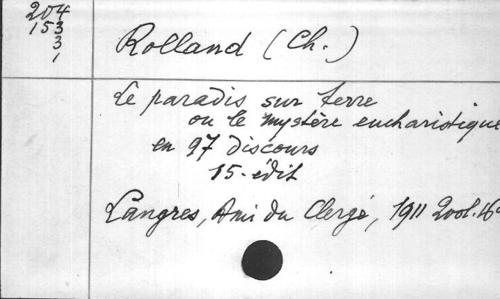 204
153
3
1
Rolland (Ch.)
Le paradis sur terre
ou le mystère eucharistique
en 97 discours
15. édit
Langres, Ami du Clergé, 1911 2 vol. 16°